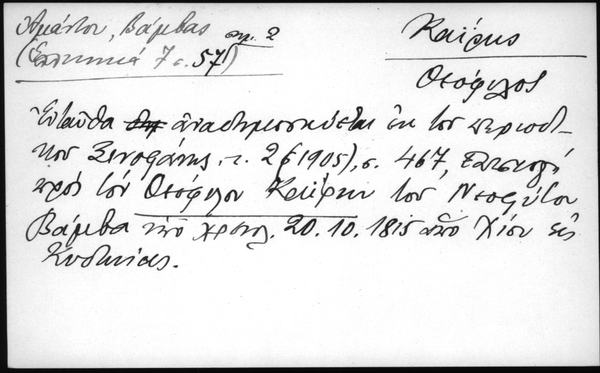 Ἀμάντου, Βάμβας σημ. 2
(Ἑλληνικά 7 σ. 57)
Καΐρης
Θεόφιλος
Ἐνταῦθα ἀναδημοσιεύεται ἐκ τοῦ περιοδι-
κοῦ Ξενοφάνης, τ. 2 (1905), σ. 467, ἐπιστολή
πρὸς τὸν Θεόφιλον Καΐρην τοῦ Νεοφύτου
Βάμβα ὑπὸ χρονολ. 20.10.1815 ἀπὸ Χίου εἰς
Κυδωνίας.